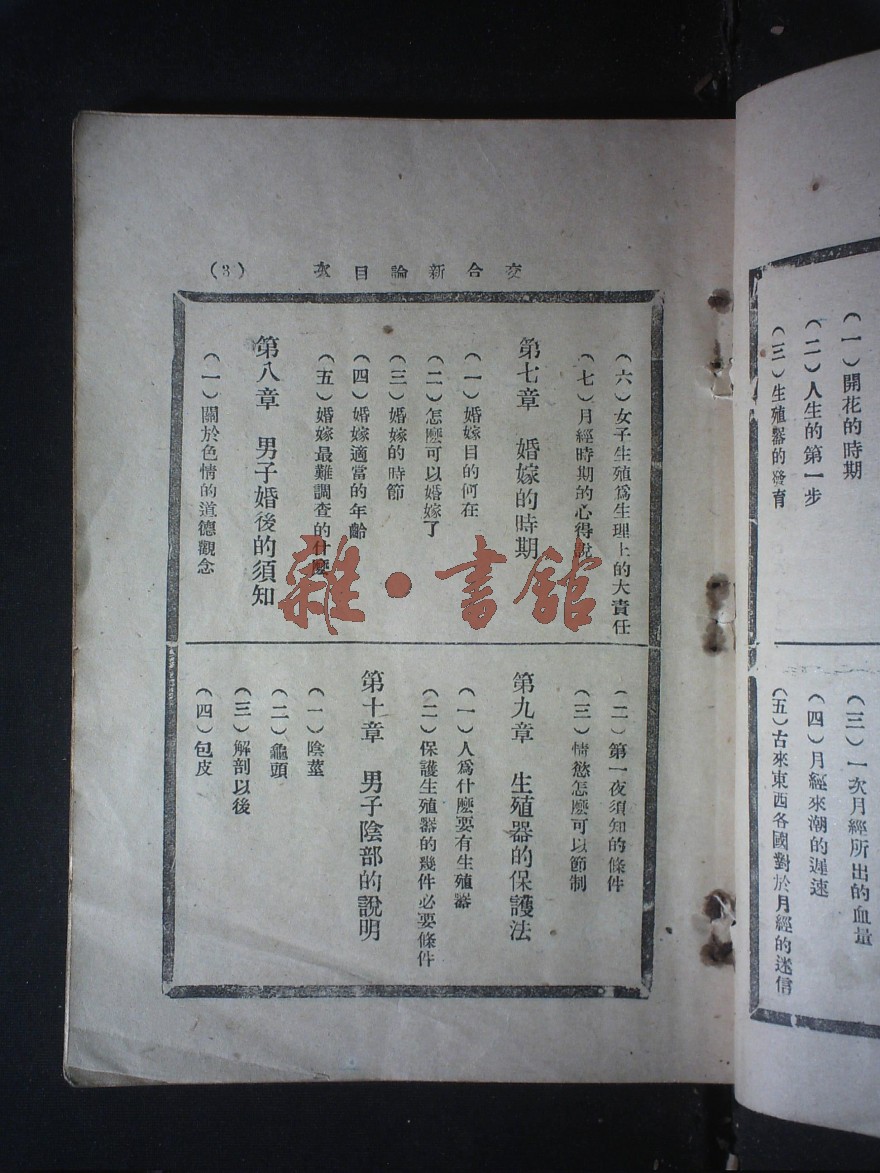 （一）開花的時期
（二）人生的第一步
（三）生殖器的發育
（三）一次月經所出的血量
（四）月經來潮的遲速
（五）古來東西各國對於月經的迷信
交合新論目次
（3）
（六）女子生殖爲生理上的大責任
（七）月經時期的心得說
第七章　婚嫁的時期
（一）婚嫁目的何在
（二）怎麽可以婚嫁了
（三）婚嫁的時節
（四）婚嫁適當的年齡
（五）婚嫁最難調查的什麽
第八章　男子婚後的須知
（一）關於色情的道德觀念
（二）第一夜須知的條件
（三）情慾怎麽可以節制
第九章　生殖器的保護法
（一）人爲什麽要有生殖器
（二）保護生殖器的幾件必要條件
第十章　男子陰部的說明
（一）陰莖
（二）龜頭
（三）解剖以後
（四）包皮
雜·書館